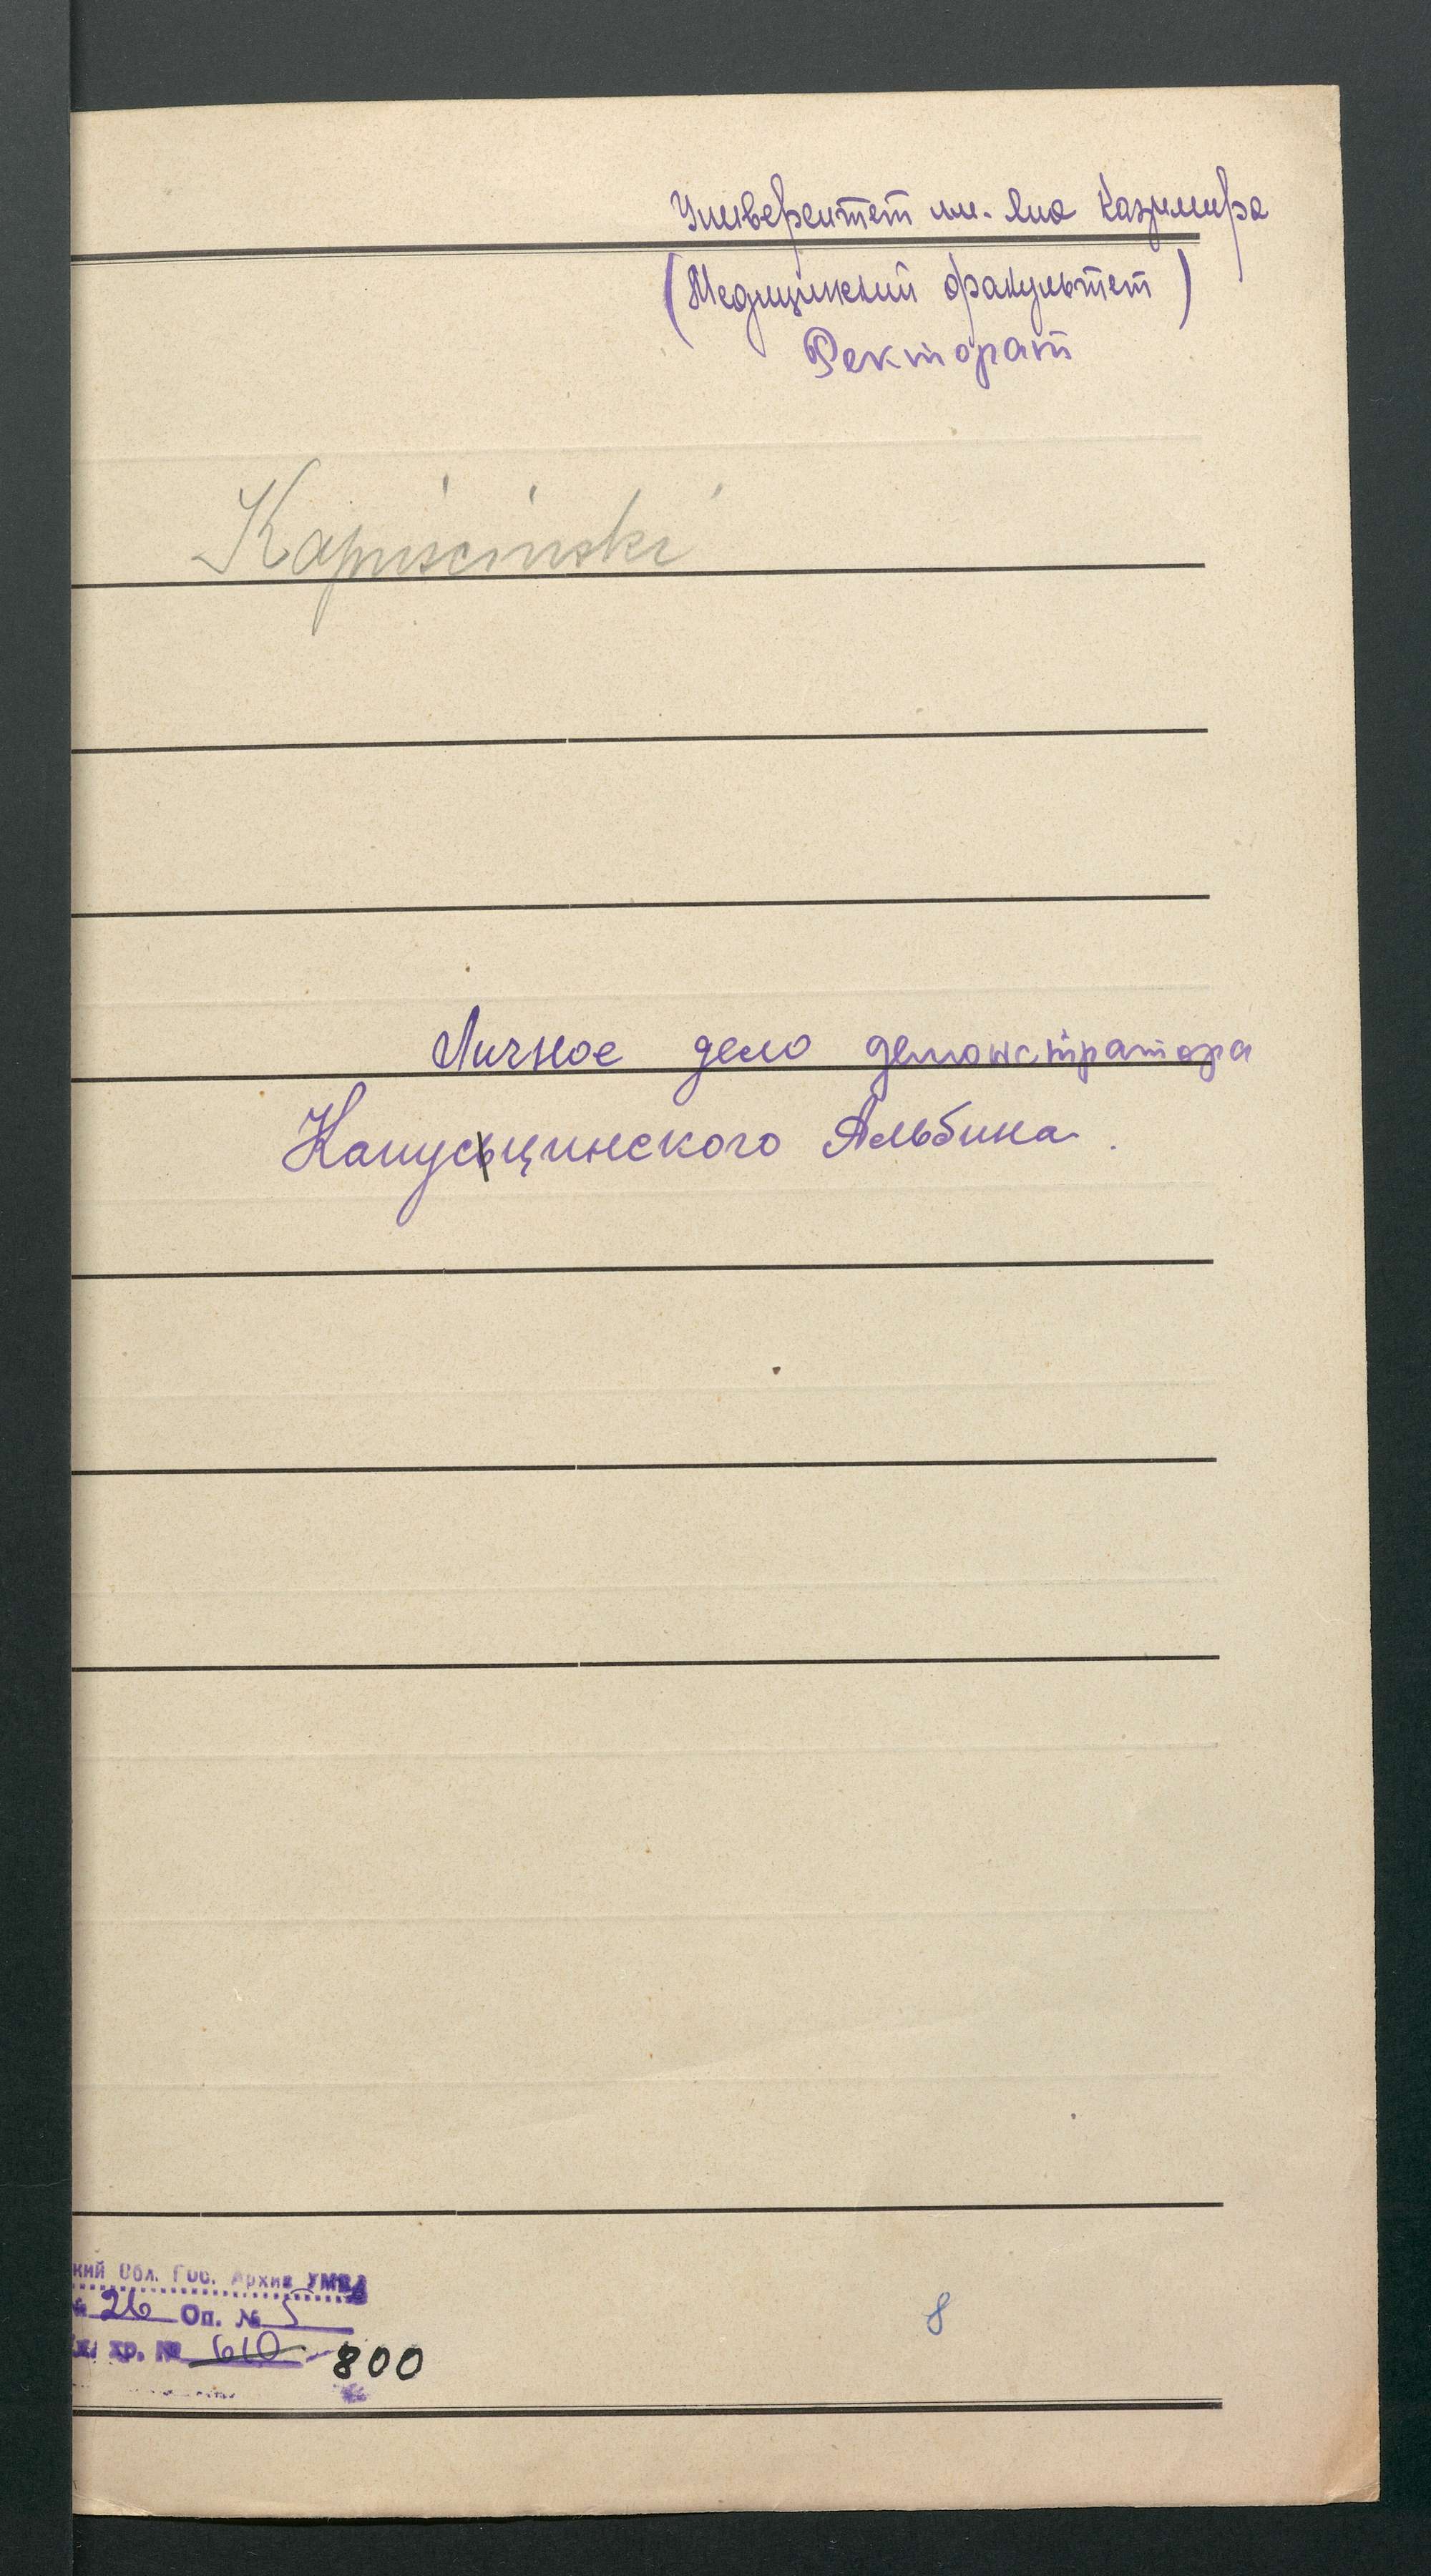 Университет им. Яна Казимира
(Медицинский факультет)
Ректорат
Kapuściński
Личное дело демонстратора
Капусьцинского Альбина.
кий Обл. Гос. Архив УМВД
№ 26 Оп. № 5
хр. № 610 800
8